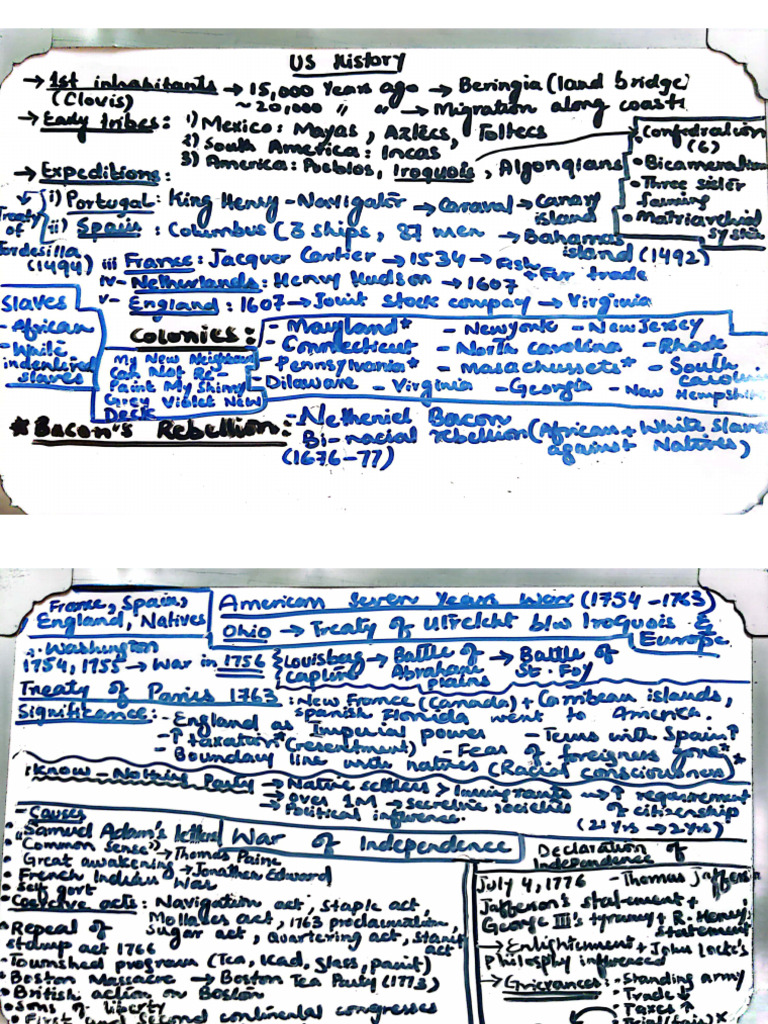 US History
→ 1st inhabitants → 15,000 years ago → Beringia (land bridge)
(Clovis) ~ 20,000 " " → Migration along coasts
→ Early tribes: 1) Mexico: Mayas, Aztecs, Toltecs
2) South America: Incas
3) America: Pueblos, Iroquois, Algonqians
• Confedration (6)
• Bicameration
• Three sister faming
• Matriarchial system
→ Expeditions:
i) Portugal: King Henry - Navigator → Caraval → Canary island
ii) Spain: Columbus (3 ships, 87 men → Bahamas island (1492)
Treaty of Tordesilla (1494)
iii France: Jacquer Cartier → 1534 → Fish
→ Fur trade
iv- Netherlands: Henry Hudson → 1607
v- England: 1607 → Joint stock compay → Virginia
Slaves
- African
- White indentured slaves
Colonies:
- Maryland* - Newyork - New Jersey
- Connecticut - North Carolina - Rhode
- Pennsylvania* - Masachussets* - South Carolina
- Dilaware - Virginia - Georgia - New Hempshire
My New Neighbour
Can Not Re-
Paint My Shinny
Grey Violet New
Deck
* Bacon's Rebellion: - Netheniel Bacon
Bi-racial rebellion (African + White slaves
(1676-77) against Natives)
France, Spain,
England, Natives
American Seven Years War (1754-1763)
Ohio → Treaty of Utrekht b/w Iroquois & Europe
∴ Washington
1754, 1755 → War in 1756 { Louisberg capture → Battle of Abraham plains → Battle of St. Foy
Treaty of Pariis 1763: New France (Canada) + Carribean islands,
spanish Florida went to America.
Significance: - England as Imperial power - Tems with Spain↑
- ↑ taxation* (resentment) - Fear of foreigness gone*
- Boundary line with natives (Racial consciousness)
: Know-Nothing Party → Native settlers > Immigrants → ↑ requirement of citizenship
→ Over 1M → secretive societies (21 yrs → 2 yrs)
→ Political influence.
War of Independence
- Causes
• "Samuel Adam's letters
• "Common sense") → Thomas Paine
• Great awakening → Jonathan Edward
• French Indian War
• Self govt
• Coercive acts: Navigation act, Staple act,
Mollases act, 1763 proclaimation,
Sugar act, Quartering act, Stamp act
• Repeal of stamp act 1766
- Townshed program (Tea, lead, glass, paint)
• Boston Massacre → Boston Tea Party (1773)
• British action on Boston
• Sons of liberty
• First and second continental congresses
Declaration of Independence
July 4, 1776 - Thomas Jafferson
Jafferson's statement +
George III's tyranny + R. Henry's statement
→ Enlightenment + John Locke's
philosphy influenced
→ Grievances: • Standing army
• Trade ↓
• Taxes ↑